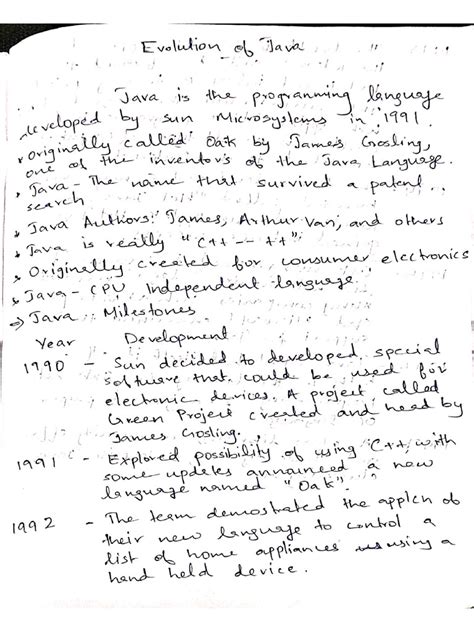 Evolution of Java
Java is the programming language
developed by Sun Microsystems in 1991.
originally called Oak by James Gosling,
one of the inventor's of the Java Language.
Java - The name that survived a patent
search
Java Authors: James, Arthur Van, and others
Java is really "C++ -- ++"
Originally created for consumer electronics
Java - CPU Independent language
⇒ Java Milestones
Year Development
1990 - Sun decided to developed special
software that could be used for
electronic devices. A project called
Green Project created and head by
James Gosling.
1991 - Explored possibility of using C++, with
some updates announced a new
language named "Oak"
1992 - The team demostrated the applcn of
their new language to control a
list of home appliances using a
hand held device.